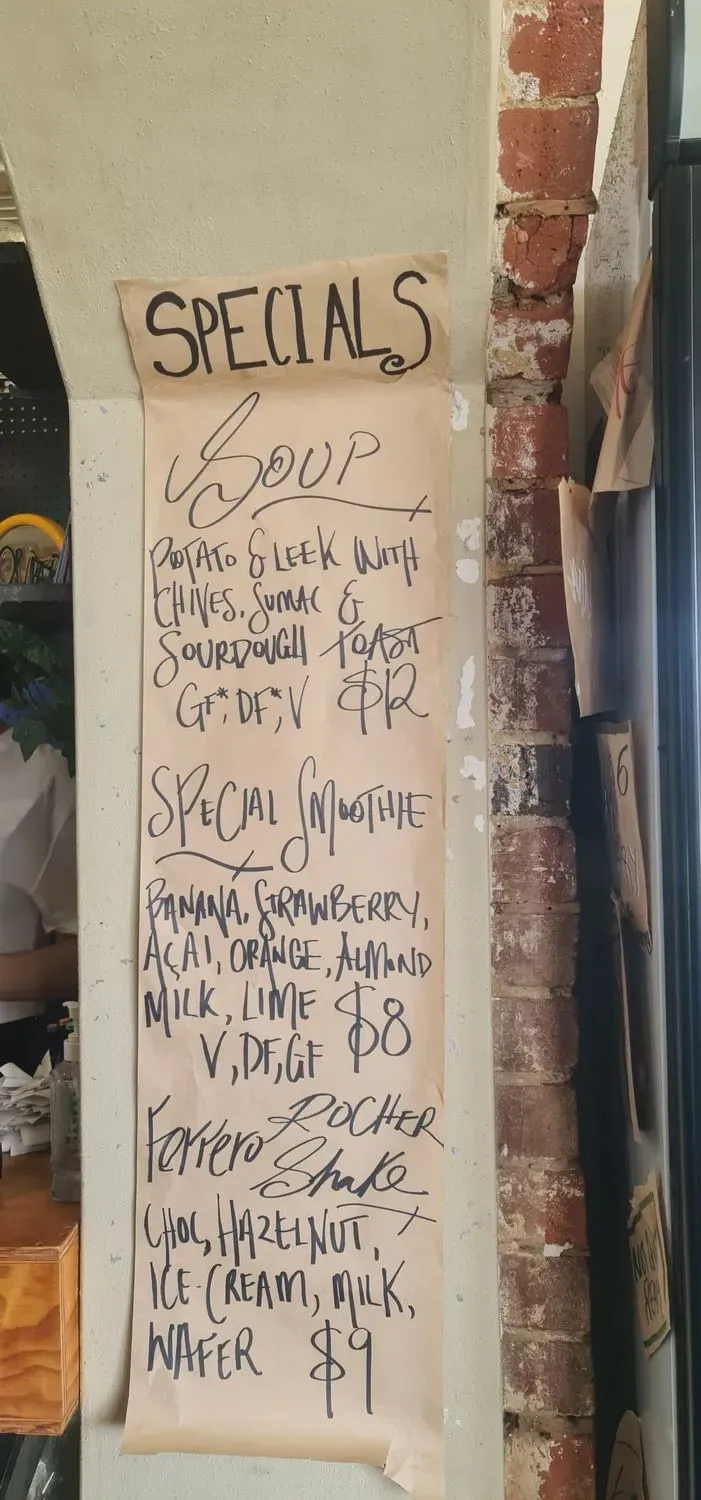 SPECIALS
SOUP
POTATO & LEEK WITH
CHIVES, SUMAC &
SOURDOUGH TOAST
GF*, DF*, V $12
SPECIAL SMOOTHIE
BANANA, STRAWBERRY,
AÇAI, ORANGE, ALMOND
MILK, LIME $8
V, DF, GF
Ferrero ROCHER
Shake
CHOC, HAZELNUT,
ICE-CREAM, MILK,
WAFER $9
6